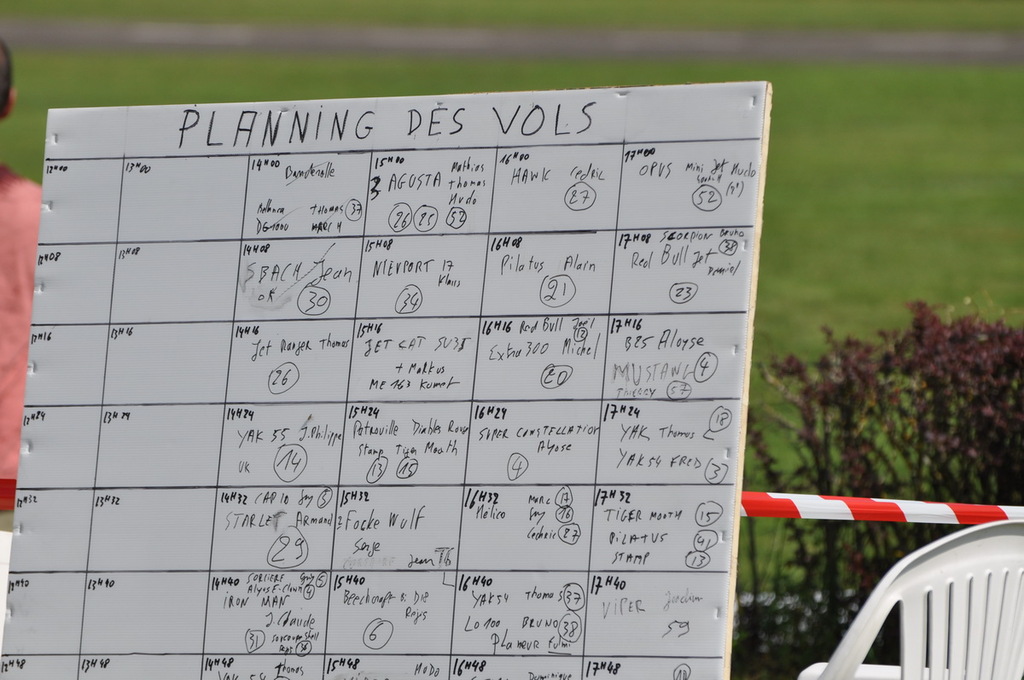 PLANNING DES VOLS
12H00
13H00
14H00
Thomas 37
DG1000 MARCH
15H00 Mathias
3 AGUSTA Thomas
Hudo
26 25 52
16H00
HAWK Cedric
27
17H00
OPUS Mini Jet Hudo
52
12H08
13H08
14H08
SBACH Jean
OK 30
15H08
NIEUPORT 17
Klaus
34
16H08
Pilatus Alain
21
17H08 SCORPION BRUNO
38
Red Bull Jet
23
12H16
13H16
14H16
Jet Ranger Thomas
26
15H16
JET CAT
+ Markus
ME 163 Komet
16H16 Red Bull
12
Extra 300 Michel
20
17H16
B25 Aloyse
4
MUSTANG
THIERRY 57
12H24
13H24
14H24
YAK 55 J.Philippe
14
15H24
Patrouille Diables Rouge
Stamp Tiger Mouth
13 15
16H24
SUPER CONSTELLATION
Aloyse
4
17H24 18
YAK Thomas
YAK54 FRED 3
12H32
13H32
14H32 CAP10 Guy 5
STARLET Armand
29
15H32
Focke Wulf
Serge
Jean
16H32 MARC 17
Hélico Guy 16
Cedric 27
17H32
TIGER MOUTH 15
PILATUS 41
STAMP 13
12H40
13H40
14H40 SORCIERE Guy 5
Aloyse-Clown 4
IRON MAN
J.Claude
31
15H40
Beechcraft
6
16H40
YAK54 Thomas 37
LO100 BRUNO 38
Planeur fumi
17H40
VIPER Joachim
59
12H48
13H48
14H48 Thomas
YAK 54
15H48
16H48 Dominique
17H48